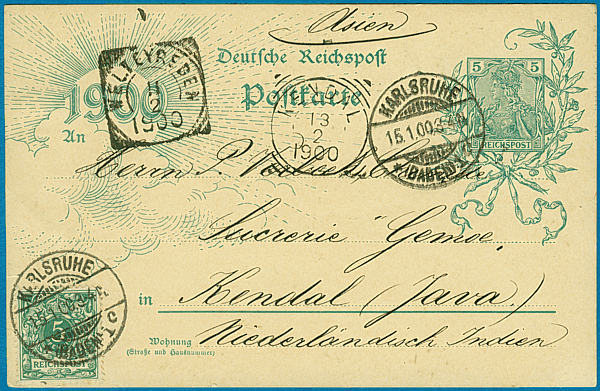 Asien
Deutsche Reichspost
1900
Postkarte
An
5 5
REICHSPOST
WELTEVREDEN
11
2
1900
KENDAL
13
2
1900
KARLSRUHE
15.1.00.
*(BADEN)1.
Herrn P.
Sucrerie Gemoe,
in Kendal (Java.)
Wohnung Niederländisch Indien
(Straße und Hausnummer)
KARLSRUHE
15.1.00.
*(BADEN)1.c
5
REICHSPOST